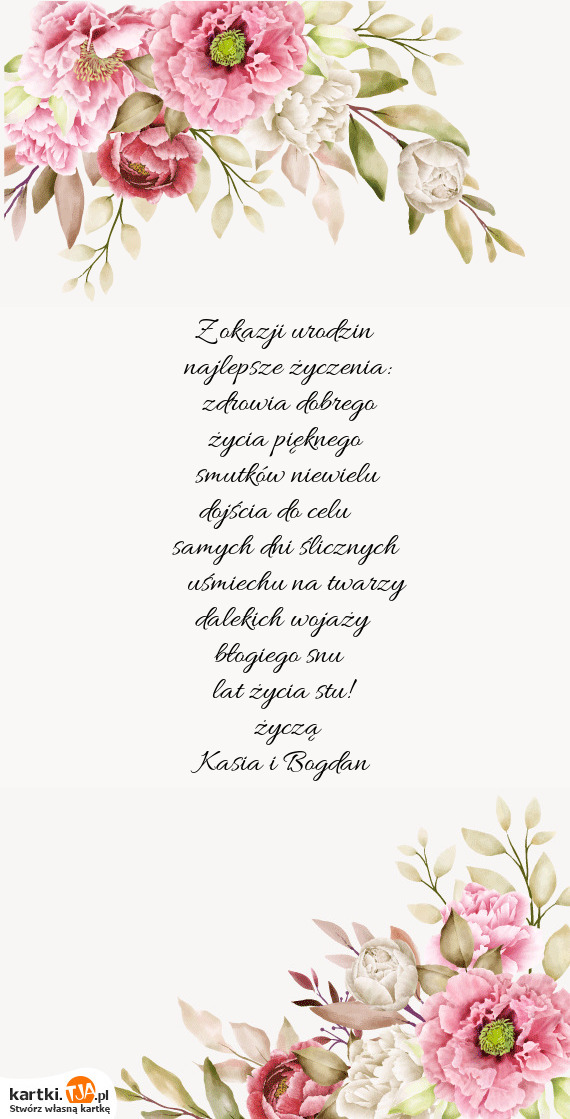 Z okazji urodzin
najlepsze życzenia:
zdrowia dobrego
życia pięknego
smutków niewielu
dojścia do celu
samych dni ślicznych
uśmiechu na twarzy
dalekich wojaży
błogiego snu
lat życia stu!
życzą
Kasia i Bogdan
kartki.TJA.pl
Stwórz własną kartkę